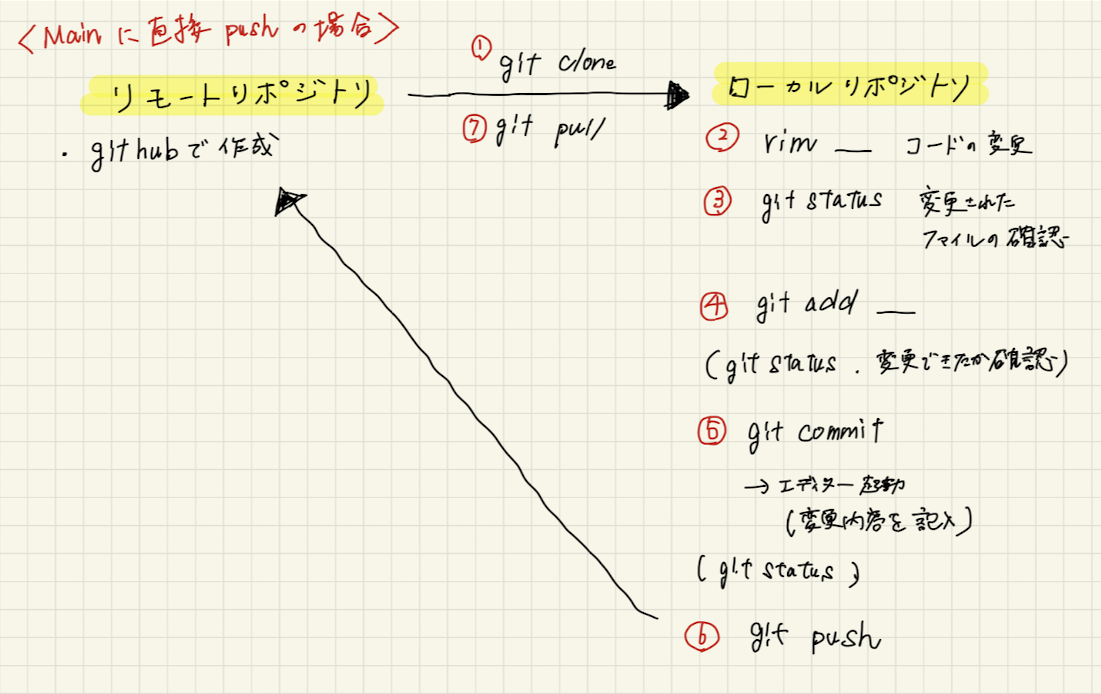 <Mainに直接pushの場合>
リモートリポジトリ
・githubで作成
① git clone
⑦ git pull
ローカルリポジトリ
② vim __ コードの変更
③ git status 変更された
ファイルの確認
④ git add __
(git status . 変更できたか確認)
⑤ git commit
→ エディター起動
(変更内容を記入)
(git status)
⑥ git push